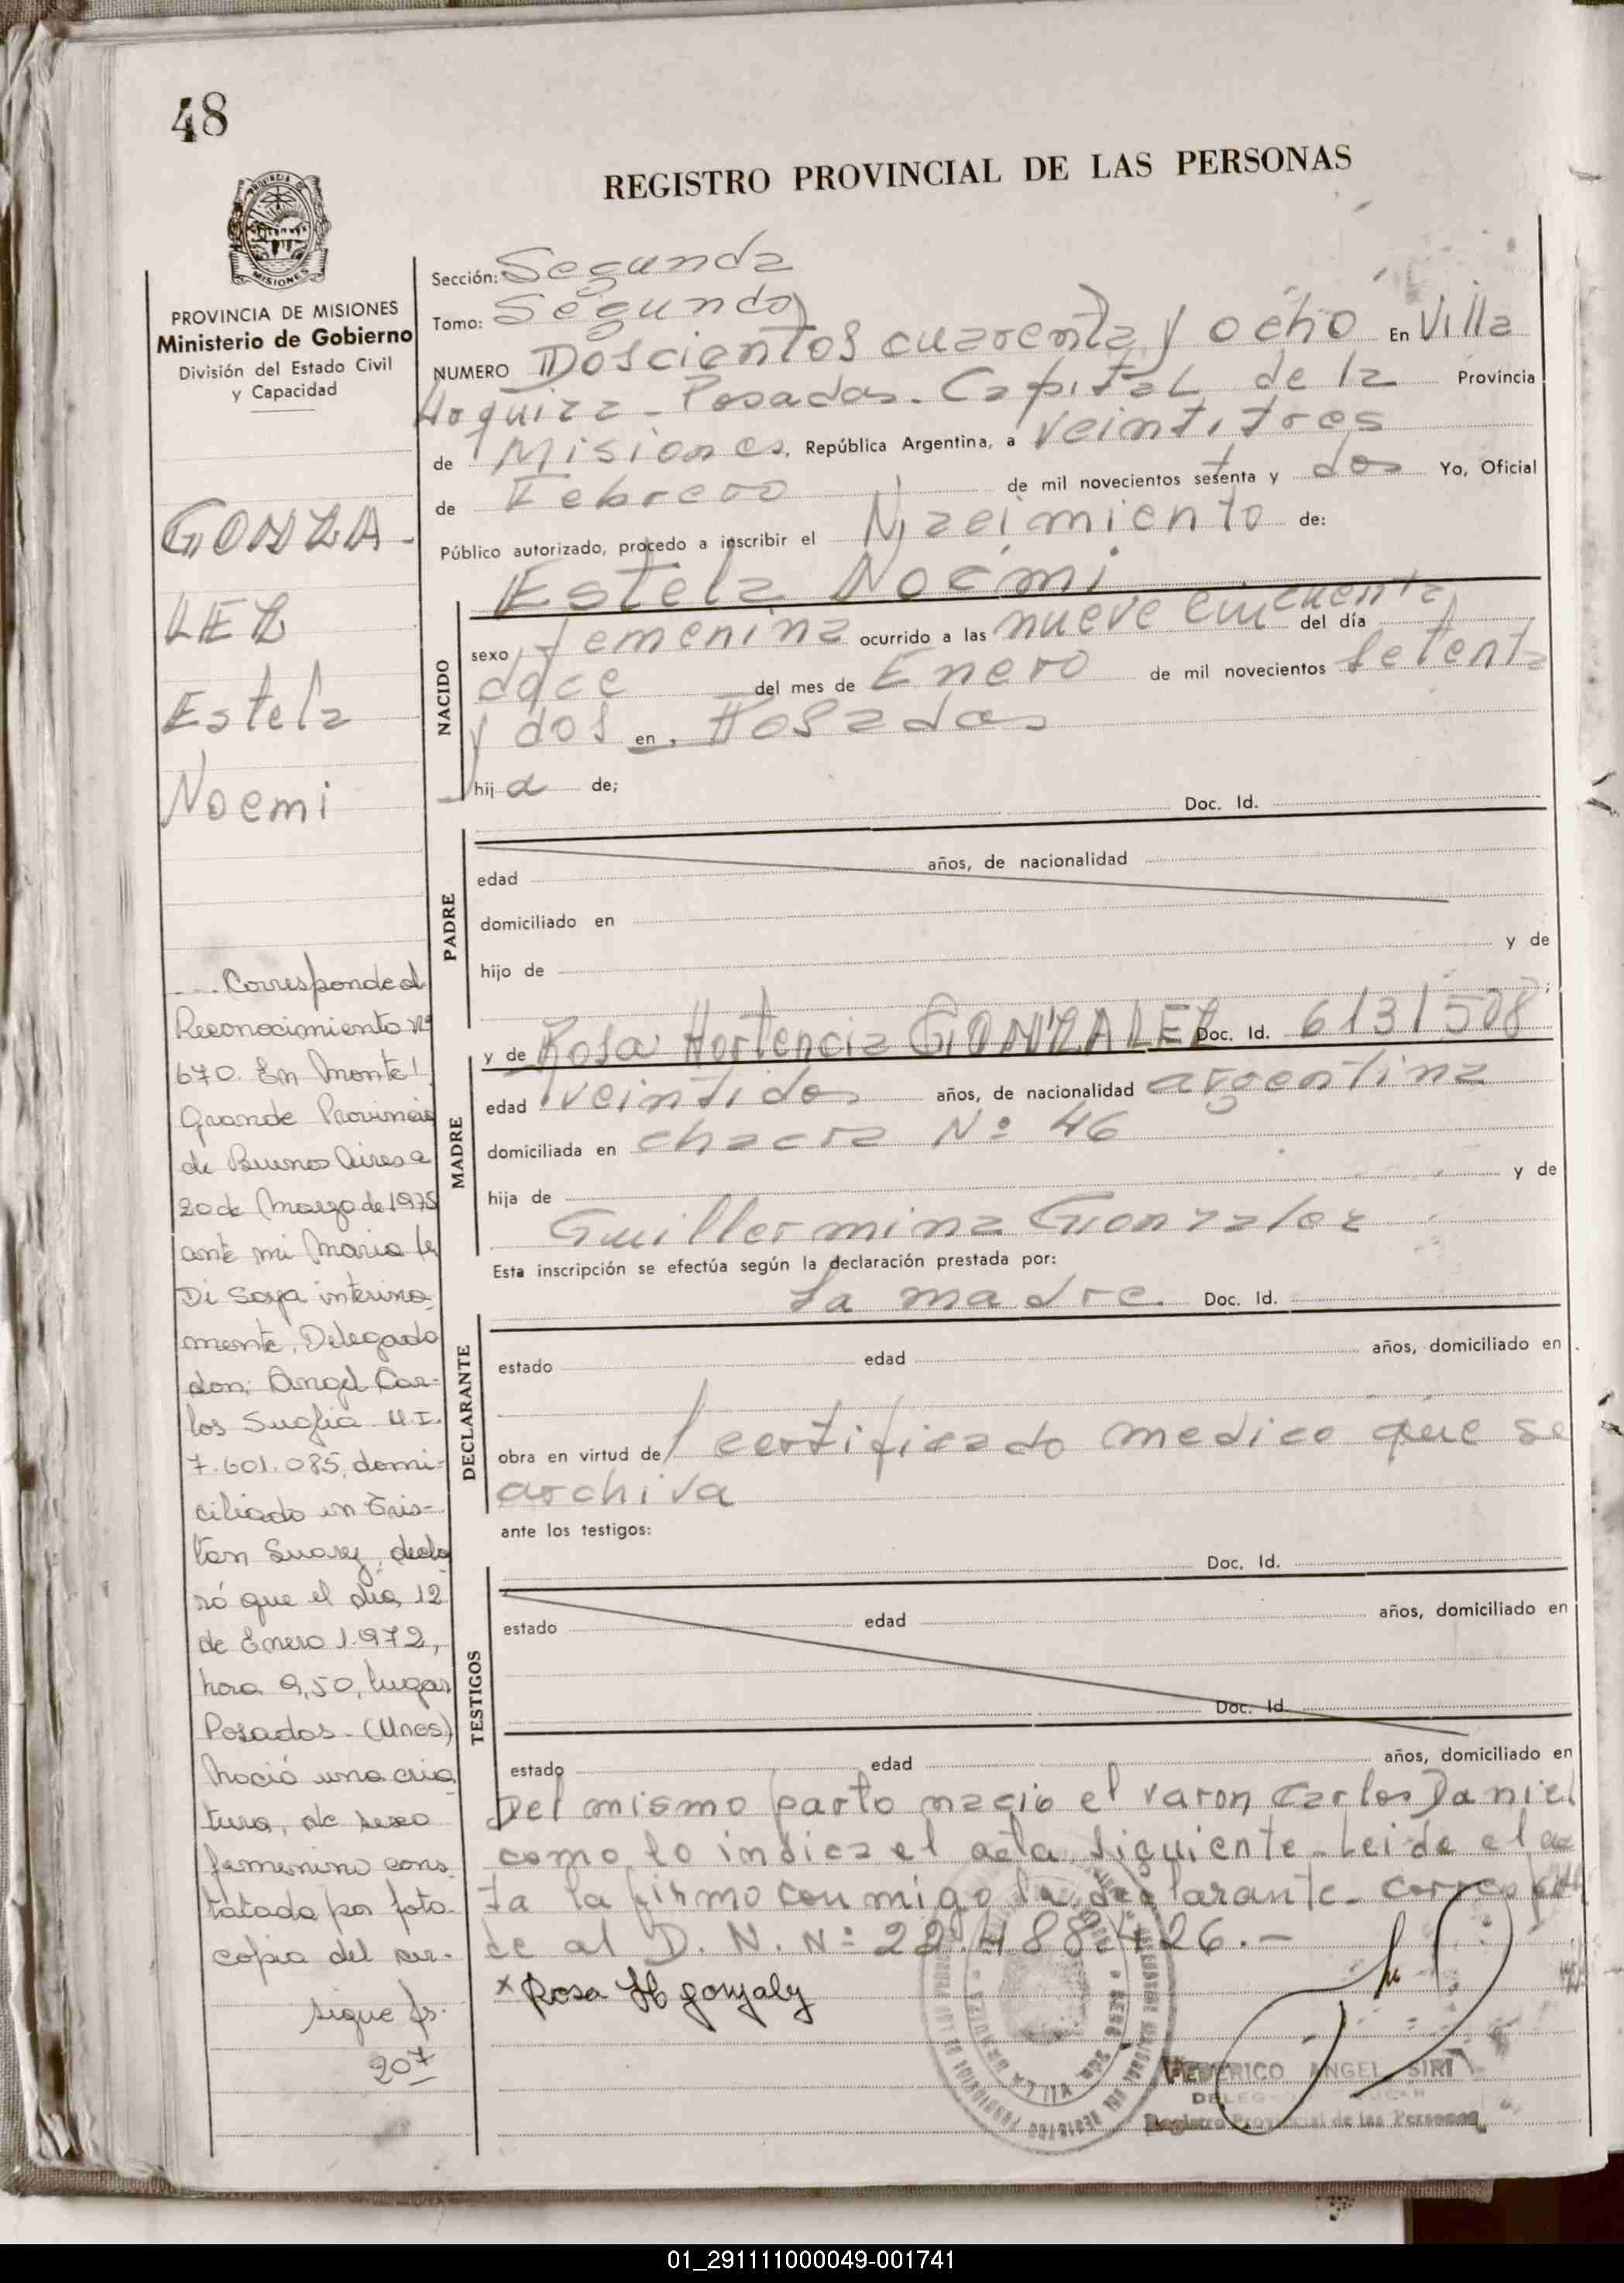 48
REGISTRO PROVINCIAL DE LAS PERSONAS
MISIONES
PROVINCIA DE MISIONES
Ministerio de Gobierno
División del Estado Civil
y Capacidad
GONZA-
LEZ
Estela
Noemi
... Corresponde al
Reconocimiento Nº
670. En Monte
Grande Provincia
de Buenos Aires a
20 de Marzo de 1975
ante mi Maria
Di interina
mente, Delegado
don: Angel Car-
los Suglia M.I.
7.601.085, domi-
ciliado en Tris-
tan Suarez, decla
ró que el dia 12
de Enero 1.972,
hora 9,50, lugar
Posadas - (Mnes)
Nació una cria
tura, de sexo
femenino cons
tatada por foto-
copia del
sigue fs.
207
Sección: Segunda
Tomo: Segundo
NUMERO Doscientos cuarenta y ocho En Villa
Urquiza - Posadas. Capital de la Provincia
de Misiones, República Argentina, a veintitres
de Febrero de mil novecientos setenta y dos Yo, Oficial
Público autorizado, procedo a inscribir el Nacimiento de:
Estela Noemi
NACIDO
sexo femenina ocurrido a las nueve cincuenta del día
doce del mes de Enero de mil novecientos setenta
y dos en, Posadas
hija de;
Doc. Id.
PADRE
edad años, de nacionalidad
domiciliado en
hijo de y de
y de Rosa Hortencia GONZALEZ Doc. Id. 6131508
MADRE
edad veintidos años, de nacionalidad argentina
domiciliada en chacra Nº 46
hija de y de
Guillermina Gonzalez
Esta inscripción se efectúa según la declaración prestada por:
la madre. Doc. Id.
DECLARANTE
estado edad años, domiciliado en
obra en virtud de certificado medico que se
archiva
ante los testigos:
Doc. Id.
TESTIGOS
estado edad años, domiciliado en
Doc. Id.
estado edad años, domiciliado en
Del mismo parto nacio el varon Carlos Daniel
como lo indica el acta siguiente - Leida el ac
ta la firmo conmigo la declarante - correspon
de al D. N. Nº 22.488.426.-
x Rosa H gonzalez
FEDERICO ANGEL SIRI
Registro Provincial de las Personas
01_291111000049-001741